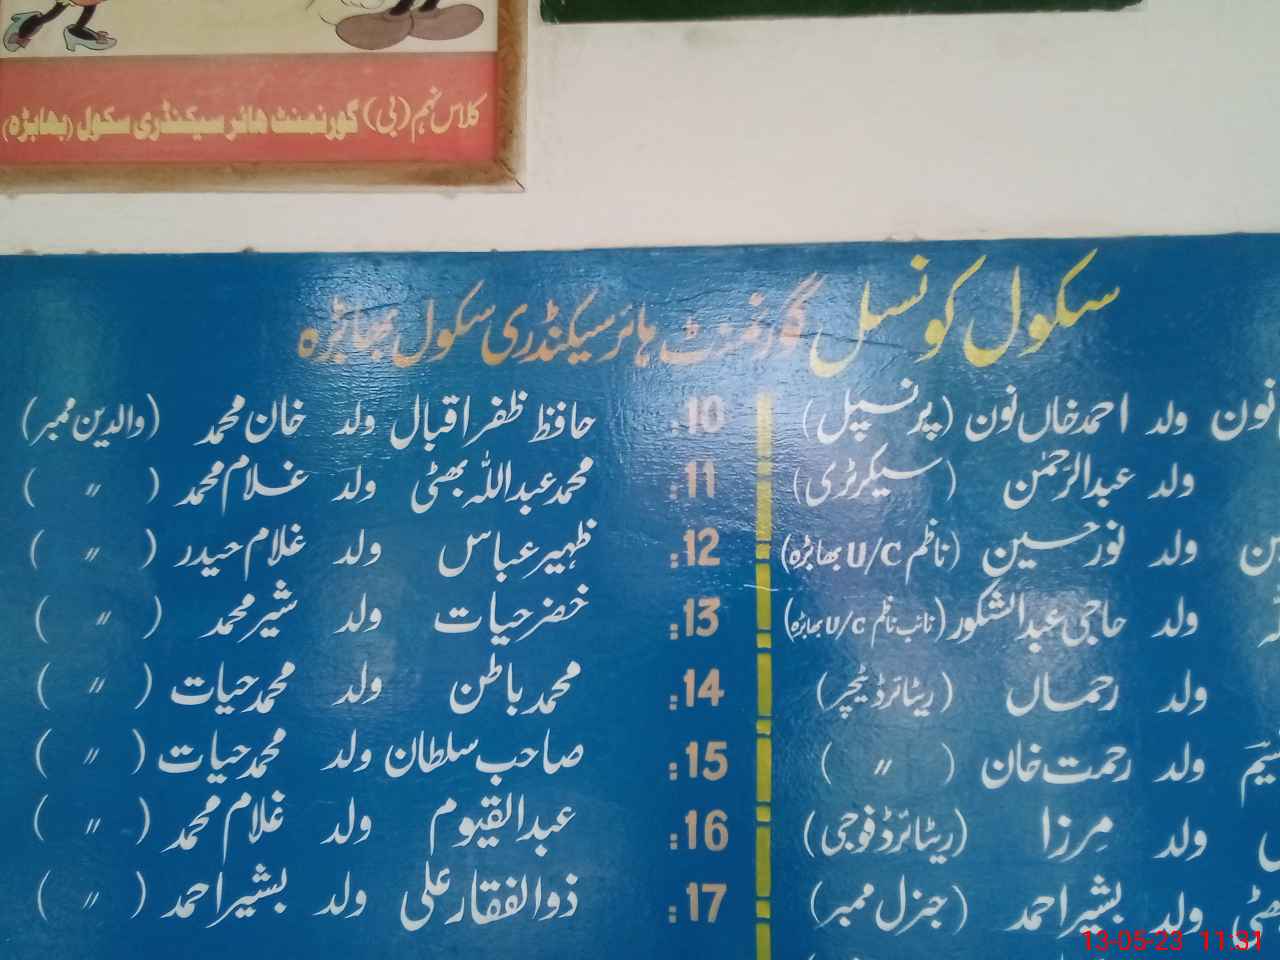 کلاس نہم (بی) گورنمنٹ ہائر سیکنڈری سکول (بھابڑہ)
سکول کونسل گورنمنٹ ہائر سیکنڈری سکول بھابڑہ
نون ولد احمد خاں نون (پرنسپل)
ولد عبدالرحمٰن (سیکرٹری)
ولد نور حسین (ناظم U/C بھابڑہ)
ولد حاجی عبدالشکور (نائب ناظم U/C بھابڑہ)
ولد رحماں (ریٹائرڈ ٹیچر)
ولد رحمت خان (〃 )
ولد مِرزا (ریٹائرڈ فوجی)
ولد بشیر احمد (جنرل ممبر)
10: حافظ ظفر اقبال ولد خان محمد (والدین ممبر)
11: محمد عبداللہ بھٹی ولد غلام محمد ( 〃 )
12: ظہیر عباس ولد غلام حیدر ( 〃 )
13: خضر حیات ولد شیر محمد ( 〃 )
14: محمد باطن ولد محمد حیات ( 〃 )
15: صاحب سلطان ولد محمد حیات ( 〃 )
16: عبدالقیوم ولد غلام محمد ( 〃 )
17: ذوالفقار علی ولد بشیر احمد ( 〃 )
13-05-23 11:31